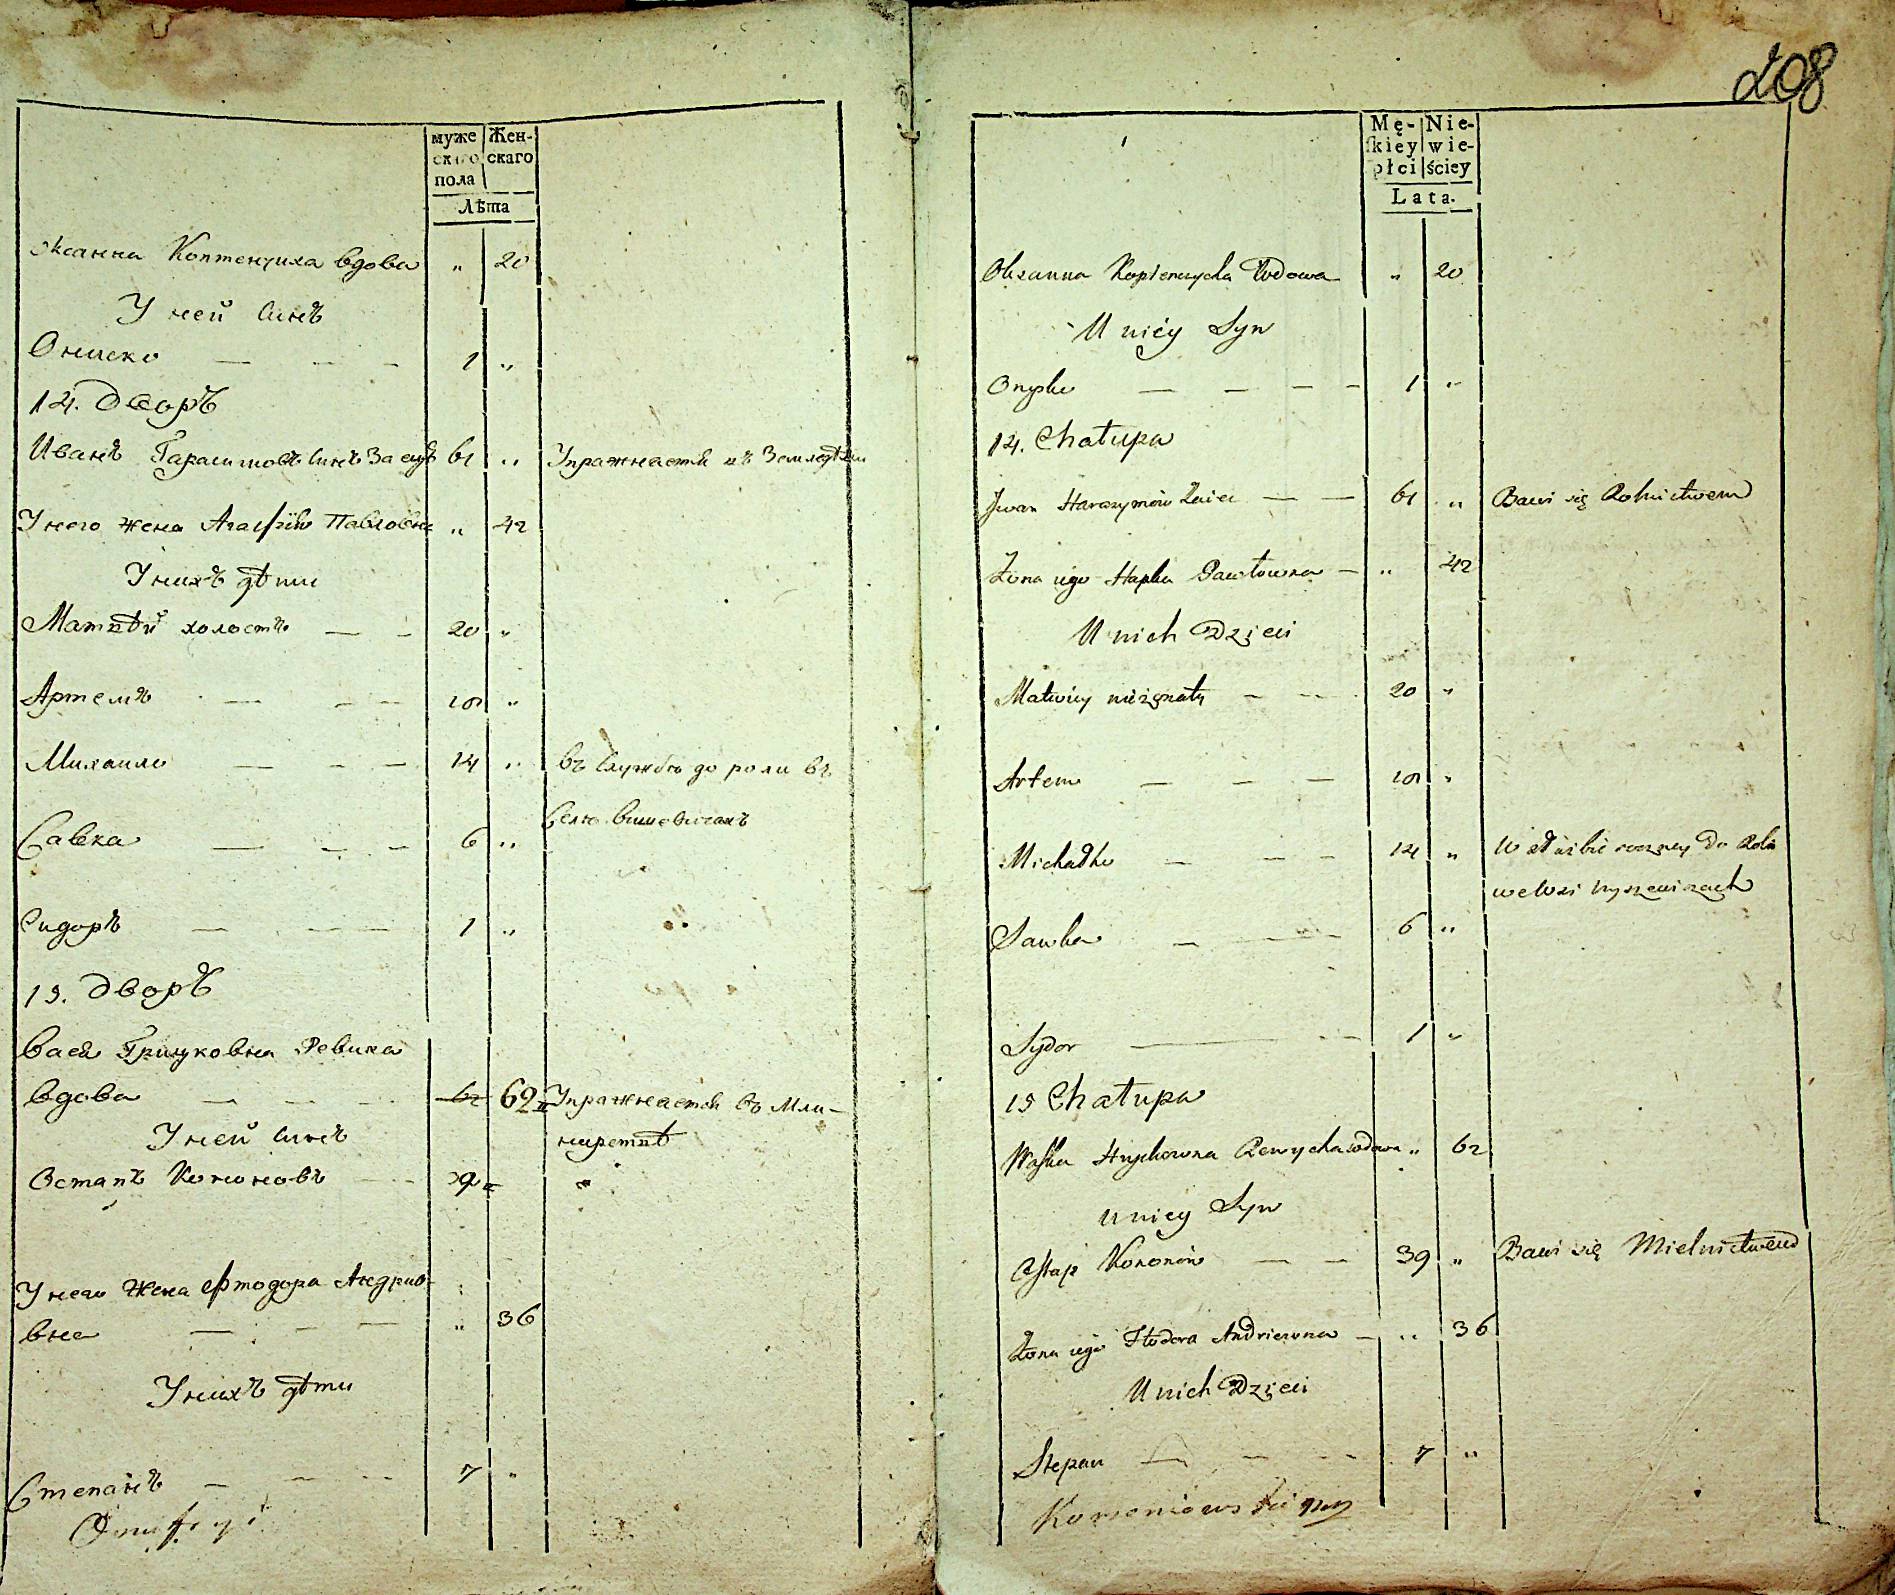 208
муже
скаго
пола
Жен-
скаго
Лѣта
Оксанна Коптенчиха вдова „ 20
У ней Синъ
Ониско — — — 1 „
14. Дворъ
Иванъ Гарасимовъ Синъ 61 „ Упражнается въ Земледѣлии
У него жена Агафия Павловна „ 42
У нихъ дѣти
Матвѣй холостъ — — 20 „
Артемъ — — — „
Михаило — — — 14 „ въ Службѣ до роли въ
Селѣ Вишевичахъ
Савка — — — 6 „
Сидоръ — — — 1 „
15. Дворъ
Вася Грицковна Ревиха
вдова — — — 62 Упражнается въ Мли-
нарствѣ
У ней Синъ
Остапъ Кононовъ — — 39 „
У него Жена Фтодора Андрие-
вна — — — „ 36
У нихъ дѣти
Степанъ — — — 7 „
Mę-
skiey
płci
Nie-
wie-
ściey
Lata.
Oksanna Kopienczycha Wdowa „ 20
U niey Syn
Onysko — — — — 1 „
14. Chałupa
Jwan Harasymów — — 61 „ Bawi się Rolnictwem
Żona iego Hapka Pawłowna — „ 42
U nich Dzieci
Matwiey nieżonaty — — 20 „
Artem — — — „
Michałko — — — 14 „ W służbie roczney do Roli
we Wsi Wyszewiczach
Sawka — — — 6 „
Sydor — — — 1 „
15 Chatupa
Waska Hryckowna Rewycha wdowa „ 62
U niey Syn
Ostap Kononów — — 39 „ Bawi się Mielnictwem
Żona iego Ftodora Andriewna — „ 36
U nich Dzieci
Stepan — — — 7 „